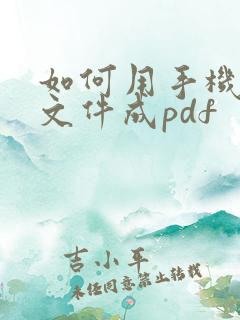 如何用手機
文件成pdf
吉小平
未经同意禁止转载